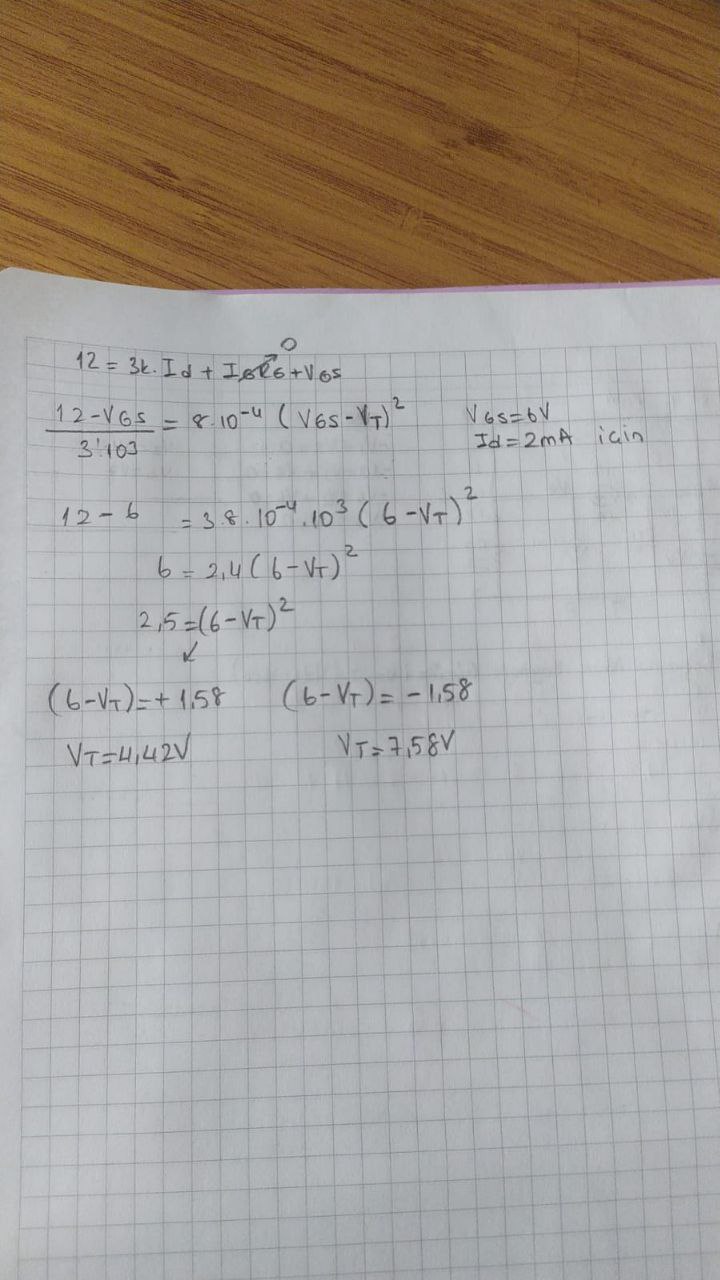 0
12 = 3k. Id + IGRG + VGS
12-VGS / 3.103 = 8.10^-4 (VGS-VT)^2 VGS=6V
Id=2mA için
12-6 = 3.8.10^-4.10^3 (6-VT)^2
6 = 2,4(6-VT)^2
2,5=(6-VT)^2
↙
(6-VT)=+1,58 (6-VT)=-1,58
VT=4,42V VT=7,58V